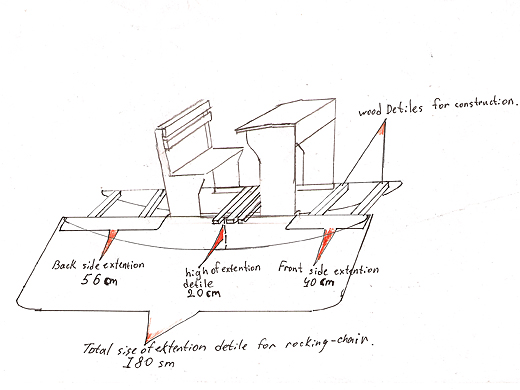 wood Detiles for construction.
Back side extention
56 cm
high of extention
detile
20 cm
Front side extention
40 cm
Total sise of extention detile for rocking-chair.
180 sm